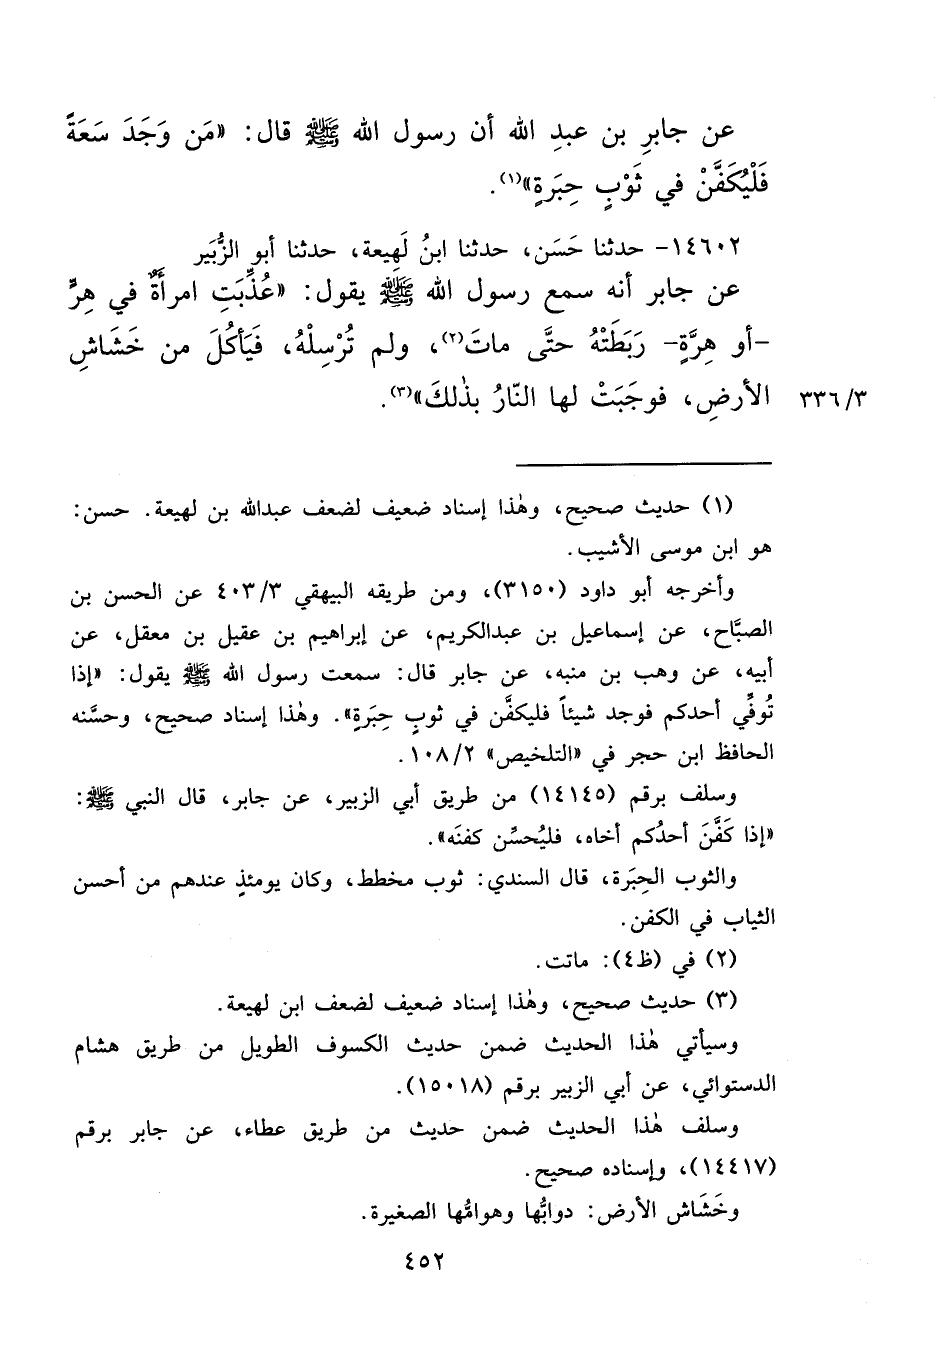 عن جابرِ بن عبدِ الله أن رسول الله ﷺ قال: «مَن وَجَدَ سَعَةً
فَلْيُكَفَّنْ في ثَوْبٍ حِبَرَةٍ»(١).
١٤٦٠٢- حدثنا حَسَن، حدثنا ابنُ لَهِيعة، حدثنا أبو الزُّبَير
عن جابر أنه سمع رسول الله ﷺ يقول: «عُذِّبَتِ امرأَةٌ في هِرٍّ
-أو هِرَّةٍ- رَبَطَتْهُ حتَّى ماتَ(٢)، ولم تُرْسِلْهُ، فَيَأكُلَ من خَشَاشِ
الأرضِ، فوجَبَتْ لها النّارُ بذٰلكَ»(٣). ٣٣٦/٣
(١) حديث صحيح، وهٰذا إسناد ضعيف لضعف عبدالله بن لهيعة. حسن:
هو ابن موسى الأشيب.
وأخرجه أبو داود (٣١٥٠)، ومن طريقه البيهقي ٤٠٣/٣ عن الحسن بن
الصبَّاح، عن إسماعيل بن عبدالكريم، عن إبراهيم بن عقيل بن معقل، عن
أبيه، عن وهب بن منبه، عن جابر قال: سمعت رسول الله ﷺ يقول: «إذا
تُوفِّي أحدكم فوجد شيئاً فليكفَّن في ثوبٍ حِبَرةٍ». وهٰذا إسناد صحيح، وحسَّنه
الحافظ ابن حجر في «التلخيص» ١٠٨/٢.
وسلف برقم (١٤١٤٥) من طريق أبي الزبير، عن جابر، قال النبي ﷺ:
«إذا كَفَّنَ أحدُكم أخاه، فليُحسِّن كفنَه».
والثوب الحِبَرة، قال السندي: ثوب مخطط، وكان يومئذٍ عندهم من أحسن
الثياب في الكفن.
(٢) في (ظ٤): ماتت.
(٣) حديث صحيح، وهٰذا إسناد ضعيف لضعف ابن لهيعة.
وسيأتي هٰذا الحديث ضمن حديث الكسوف الطويل من طريق هشام
الدستوائي، عن أبي الزبير برقم (١٥٠١٨).
وسلف هٰذا الحديث ضمن حديث من طريق عطاء، عن جابر برقم
(١٤٤١٧)، وإسناده صحيح.
وخَشَاش الأرض: دوابُّها وهوامُّها الصغيرة.
٤٥٢